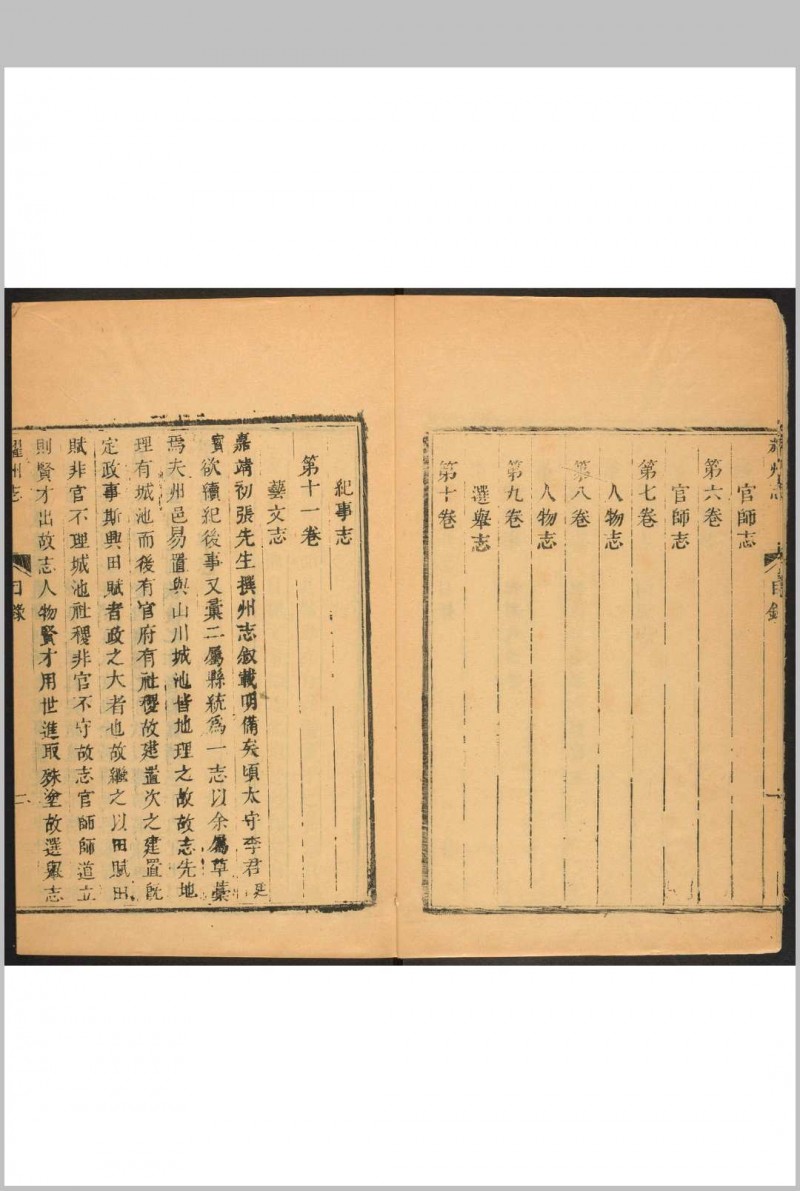 官師志
第六卷
官師志
第七卷
人物志
第八卷
人物志
第九卷
選舉志
第十卷
紀事志
第十一卷
藝文志
嘉靖初張先生撰州志叙載明備矣頃太守李君廷
寳欲續紀後事又彚二屬縣統爲一志以余屬草藁
焉夫州邑易置與山川城池皆地理之故故志先地
理有城池而後有官府有社稷故建置次之建置旣
定政事斯興田賦者政之大者也故繼之以田賦田
賦非官不理城池社稷非官不守故志官師師道立
則賢才出故志人物賢才用世進取殊塗故選舉志
耀州志 目錄 二